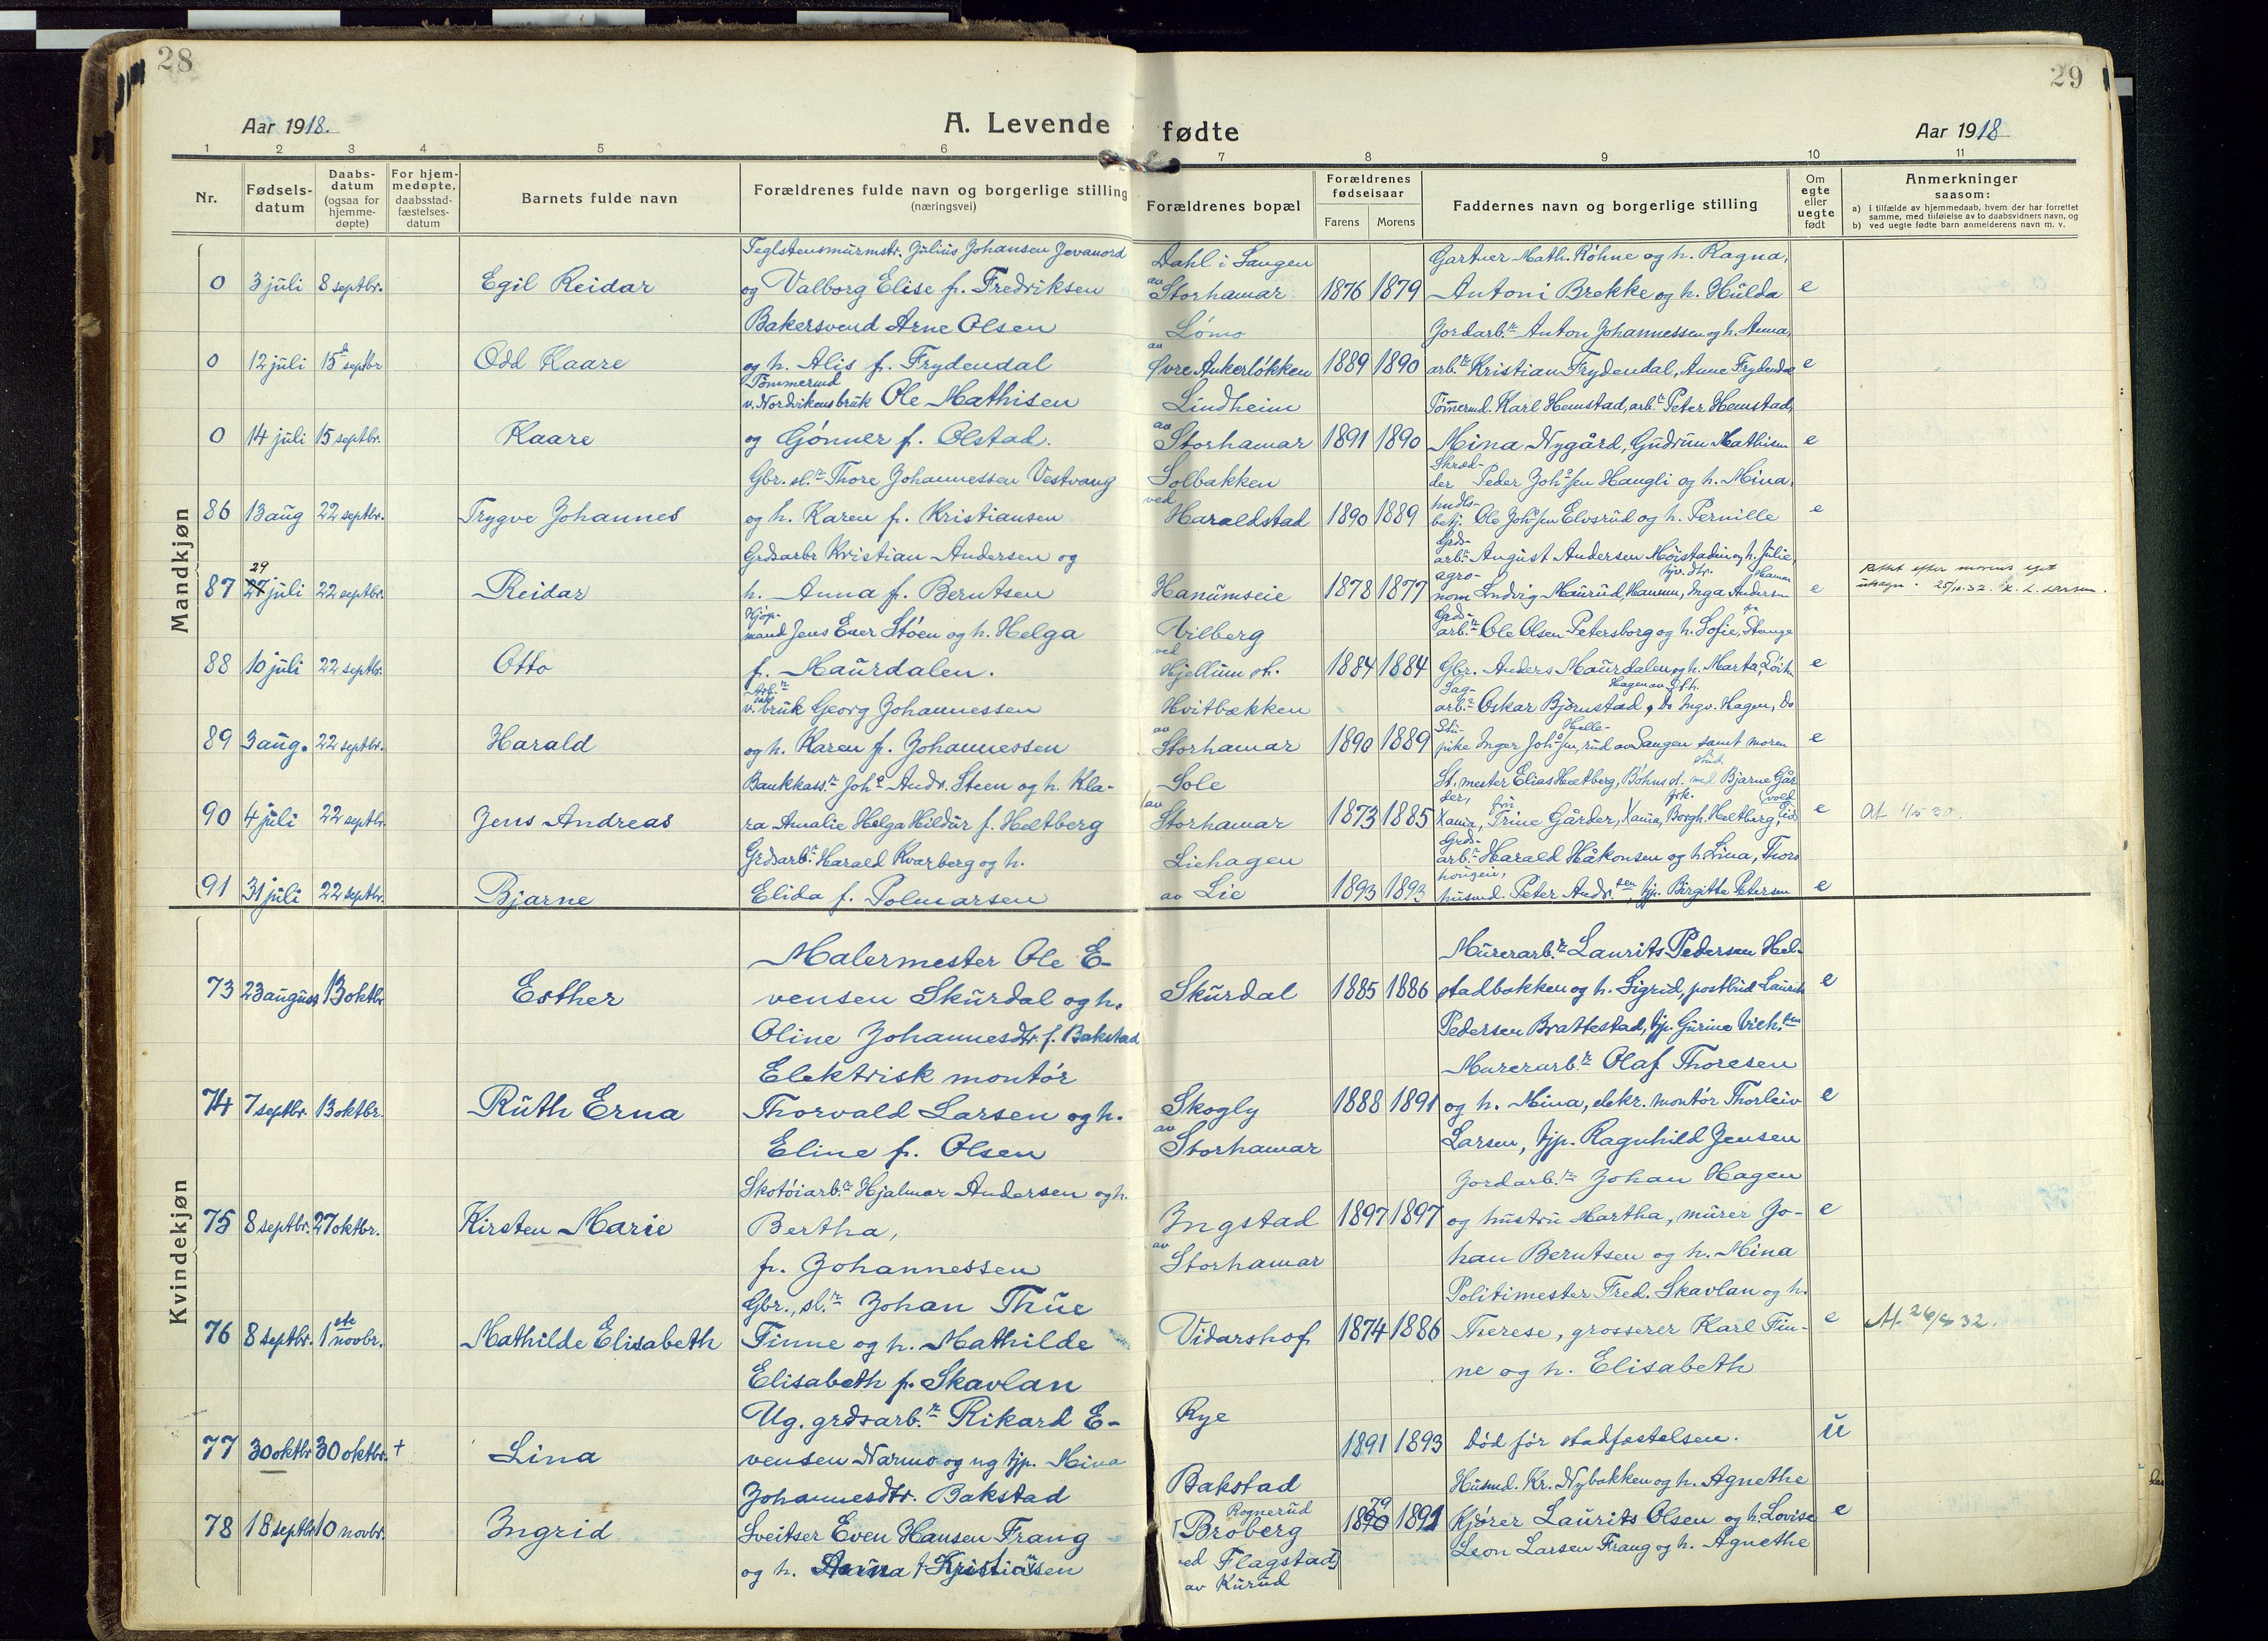 28
29
Aar 1918.
A. Levende fødte
Aar 1918
1 2 3 4 5 6 7 8 9 10 11
Nr.
Fødsels-
datum
Daabs-
datum
(ogsaa for
hjemme-
døpte)
For hjem-
medøpte,
daabsstad-
fæstelses-
datum
Barnets fulde navn
Forældrenes fulde navn og borgerlige stilling
(næringsvei)
Forældrenes bopæl
Forældrenes
fødselsaar
Farens Morens
Faddernes navn og borgerlige stilling
Om
egte
eller
uegte
født
Anmerkninger
saasom:
a) i tilfælde av hjemmedaab, hvem der har forrettet
samme, med tilføielse av to daabsvidners navn, og
b) ved uegte fødte barn anmelderens navn m. v.
Mandkjøn
Teglstensmurmstr. Julius Johansen Jevanord Dahl i Sangen Gartner Math. Röhne og h. Ragna,
0 3 juli 8 septbr. Egil Reidar og Valborg Elise f. Fredriksen av Storhamar 1876 1879 Antoni Brekke og h. Hulda e
Bakersvend Arne Olsen Lömo Jordarb.r Anton Johannessen og h. Anna,
0 12 juli 15de septbr Odd Kaare og h. Alis f. Frydendal av Øvre Ankerløkken 1889 1890 arb.r Kristian Frydendal, Anne Frydendal e
Tömmermd
v. Nordvikens bruk Ole Mathisen Lindheim Tömmermd. Karl Hemstad, arb.r Peter Hemstad,
0 14 juli 15 septbr. Kaare og Gönner f. Olstad. av Storhamar 1891 1890 Mina Nygård, Gudrun Mathisen e
Gbr. sl.r Thore Johannessen Vestvang Solbakken Skræd-
der Peder Johsen Haugli og h. Mina,
86 13 aug 22 septbr. Trygve Johannes og h. Karen f. Kristiansen ved Haraldstad 1890 1889 hndls-
betj. Ole Johsen Elvsrud og h. Pernille e
Grdsarbr Kristian Andersen og Grds-
arb.r August Andersen Möistadin og h. Julie,
87 27 29 juli 22 septbr. Reidar h. Anna f. Berntsen Hanumseie 1878 1877 agro-
nom Ludvig Maurud, Hamm, tjv. dtr. Inga Andersen Hamm e Rettet efter morens eget
utsagn. 25/10.32. K. L. Larsen.
Kjöp-
mand Jens Ener Stöen og h. Helga Vilberg Grds-
arb.r Ole Olsen Petersborg og h. Sofie, fra Stange
88 10 juli 22 septbr. Otto f. Maurdalen. ved Hjellum st. 1884 1884 Gbr. Anders Maurdalen og h. Marta, Löiten e
Arb.r
v. bruk Georg Johannessen Hvitbækken Sag-
arb.r Oskar Bjørnstad, Do Ingv. Hagen, Do
89 3 aug. 22 septbr. Harald og h. Karen f. Johannessen av Storhamar 1890 1889 pike Inger Johsen, Helle-
rud av Sangen samt moren e
Bankkass.r Joh.s Andr. Steen og h. Kla- Sole St. mester Elias Heltberg, Böhns st. stud. med Bjarne Går
90 4 juli 22 septbr. Jens Andreas ra Amalie Helga Hildur f. Heltberg av Storhamar 1873 1885 der, Vania, fru Trine Gårder, Vania, frk. Borgh. Heltberg, e At 4/5 30.
Grdsarb.r Harald Kvarberg og h. Liehagen Grds-
arb.r Harald Håkonsen og h. Lina, Thors
91 31 juli 22 septbr. Bjarne Elida f. Polmarsen av Lie 1893 1893 husmd. Peter Andr.sen, tjp. Birgitte Petersen e
Kvindekjøn
Malermester Ole E- Murerarb.r Laurits Pedersen Hel-
73 23 august 13 oktbr Esther vensen Skurdal og h. Skurdal 1885 1886 stadbakken og h. Sigrid, postbud Laurits e
Oline Johannesdtr. f. Bakstad Pedersen Brattestad, tjp. Gurine Vilh.sen
Elektrisk montör Murerarb.r Olaf Thoresen
74 7 septbr. 13 oktbr. Ruth Erna Thorvald Larsen og h. Skogly 1888 1891 og h. Mina, elekr. montör Thorleiv e
Eline f. Olsen av Storhamar Larsen, tjp. Ragnhild Jensen
Skotöiarb.r Hjalmar Andersen og h. Jordarb.r Johan Hagen
75 8 septbr. 27 oktbr. Kirsten Marie Bertha, Ingstad 1897 1897 og hustru Martha, murer Jo- e
f. Johannessen av Storhamar han Berntsen og h. Mina
Gbr., sl.r Johan Thue Politimester Fred. Skavlan og h.
76 8 septbr. 1ste novbr. Mathilde Elisabeth Finne og h. Mathilde Vidarshof 1874 1886 Therese, grosserer Karl Fin- e At. 26/8 32.
Elisabeth f. Skavlan ne og h. Elisabeth
Ug. grdsarb.r Rikard E- Rye
77 30 oktbr 30 oktbr. + Lina vensen Narmo og ug tjp. Mina 1891 1893 Död för stadfæstelsen. u
Johannesdtr. Bakstad Bakstad Husmd. Kr. Nybakken og h. Agnethe
78 18 septbr 10 novbr. Ingrid Sveitser Even Hansen Frang Rognerud Broberg 1890 79 1891 Kjörer Laurits Olsen og h. Lovise e
og h. Anna f. Kristiansen ved Flagstad, Leon Larsen Frang og h. Agnethe
av Kurud